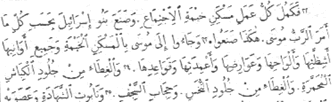 ٣٢فَكَمُلَ كُلُّ عَمَلِ مَسْكَنِ خَيْمَةِ ٱلِٱجْتِمَاعِ. وَصَنَعَ بَنُو إِسْرَائِيلَ بِحَسَبِ كُلِّ مَا
أَمَرَ ٱلرَّبُّ مُوسَى. هٰكَذَا صَنَعُوا ٣٣وَجَاءُوا إِلَى مُوسَى بِٱلْمَسْكَنِ ٱلْخَيْمَةِ وَجَمِيعِ أَوَانِيهَا
أَشِظَّتِهَا وَأَلْوَاحِهَا وَعَوَارِضِهَا وَأَعْمِدَتِهَا وَقَوَاعِدِهَا. ٣٤وَٱلْغِطَاءِ مِنْ جُلُودِ ٱلْكِبَاشِ
ٱلْمُحَمَّرَةِ. وَٱلْغِطَاءِ مِنْ جُلُودِ ٱلتُّخَسِ. وَحِجَابِ ٱلسَّجْفِ. ٣٥وَتَابُوتِ ٱلشَّهَادَةِ وَعَصَوَيْهِ